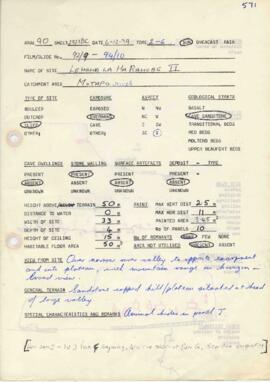 571
AREA 90 SHEET 2928BC DATE 6-12-79 TIME 2-6 SUN OVERCAST RAIN
FILM/SLIDE No. 92/9 - 94/10
NAME OF SITE LEHAHA LA MARAMBE II
CATCHMENT AREA MOTAPO
TYPE OF SITE EXPOSURE ASPECT GEOLOGICAL STRATA
BOULDER EXPOSED N NW BASALT
OUTCROP OVERHANG NE W CAVE SANDSTONE
CLIFF CAVE E SW TRANSITIONAL BEDS
OTHER: OTHER: SE S RED BEDS
MOLTENO BEDS
UPPER BEAUFORT BEDS
CAVE DWELLINGS STONE WALLING SURFACE ARTEFACTS DEPOSIT - TYPE
PRESENT PRESENT PRESENT PRESENT
ABSENT ABSENT ABSENT ABSENT
UNKNOWN UNKNOWN UNKNOWN UNKNOWN
HEIGHT ABOVE TERRAIN 50 PAINT MAX VERT DIST 2.5
DISTANCE TO WATER 0 MAX HOR DIST 11
WIDTH OF SITE 33 PAINTED AREA
DEPTH OF SITE 4 No OF PANELS 10
HEIGHT OF CEILING 15 No OF REMNANTS FEW NONE
HABITABLE FLOOR AREA 50 AREA NOT UTILISED PRESENT ABSENT
VIEW FROM SITE over valley to opposite escarpment
and into plateau, with mountain range on horizon -
broad view.
GENERAL TERRAIN Sandstone capped hill/plateau situated at head
of large valley
SPECIAL CHARACTERISTICS AND REMARKS Animal in panel J.